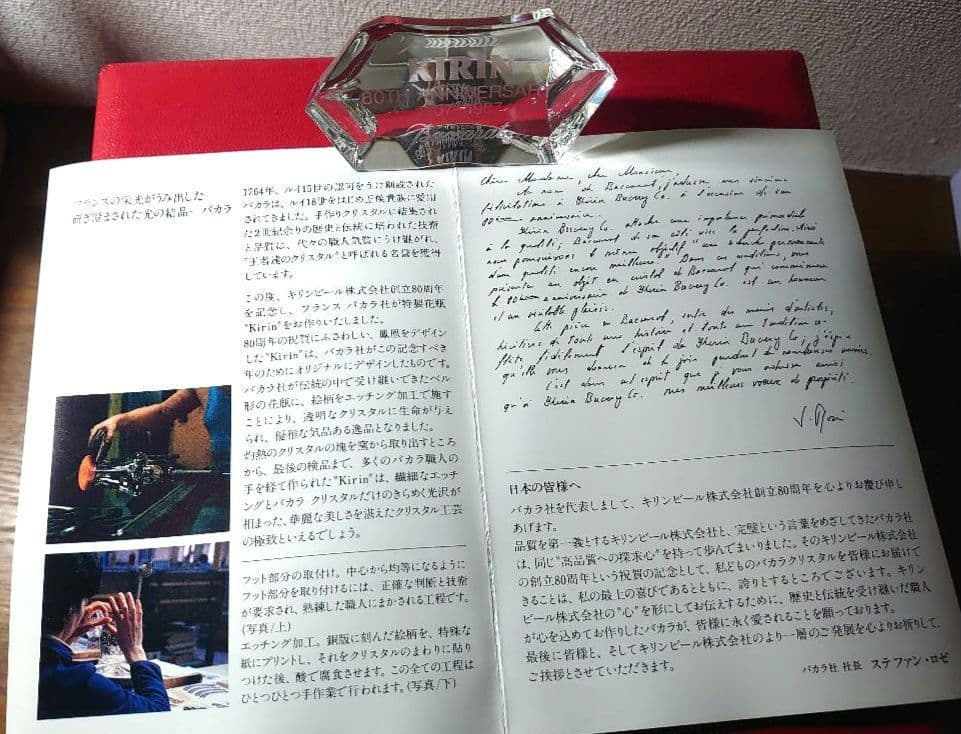 KIRIN
80TH ANNIVERSARY
1907-1987
Baccarat
フランスの栄光がうみ出した
研ぎ澄まされた光の結晶- バカラ
1764年、ルイ15世の認可をうけ創設された
バカラは、ルイ18世をはじめ王侯貴族に愛用
されてきました。手作りクリスタルに結集され
た2世紀余りの歴史と伝統に培われた技術
と品質は、代々の職人気質にうけ継がれ、
"王者達のクリスタル"と呼ばれる名誉を獲得
しています。
この度、キリンビール株式会社創立80周年
を記念し、フランス バカラ社が特製花瓶
"Kirin"をお作りいたしました。
80周年の祝賀にふさわしい、鳳凰をデザイン
した"Kirin"は、バカラ社がこの記念すべき
年のためにオリジナルにデザインしたものです。
バカラ社が伝統の中で受け継いできたベル
形の花瓶に、絵柄をエッチング加工で施す
ことにより、透明なクリスタルに生命が与え
られ、優雅な気品ある逸品となりました。
灼熱のクリスタルの塊を窯から取り出すところ
から、最後の検品まで、多くのバカラ職人の
手を経て作られた"Kirin"は、繊細なエッチ
ングとバカラ クリスタルだけのきらめく光沢が
相まった、華麗な美しさを湛えたクリスタル工芸
の極致といえるでしょう。
フット部分の取付け。中心から均等になるように
フット部分を取り付けるには、正確な判断と技術
が要求され、熟練した職人にまかされる工程です。
(写真/上)
エッチング加工。銅版に刻んだ絵柄を、特殊な
紙にプリントし、それをクリスタルのまわりに貼り
つけた後、酸で腐食させます。この全ての工程は
ひとつひとつ手作業で行われます。(写真/下)
Chère Madame, cher Monsieur
Au nom de Baccarat, j'adresse mes sincères
félicitations à Kirin Brewery Co. à l'occasion de son
80ème anniversaire.
Kirin Brewery Co. attache une importance primordiale
à la qualité; Baccarat de son côté vise la perfection.
nous poursuivons le même objectif "une recherche permanente
d'une qualité encore meilleure". Dans ces conditions, vous
présenter un objet en cristal de Baccarat qui commémore
le 80ème anniversaire de Kirin Brewery Co. est un honneur
et un véritable plaisir.
Cette pièce de Baccarat, sortie des mains d'artistes,
héritiers de toute une histoire et toute une tradition
fidèlement l'esprit de Kirin Brewery Co.
qu'elle vous donnera de la joie pendant de nombreuses années.
C'est dans cet esprit que
qu'à Kirin Brewery Co. mes meilleurs voeux de prospérité.
日本の皆様へ
バカラ社を代表しまして、キリンビール株式会社創立80周年を心よりお慶び申し
あげます。
品質を第一義とするキリンビール株式会社と、完璧という言葉をめざしてきたバカラ社
は、同じ"高品質への探求心"を持って歩んでまいりました。そのキリンビール株式会社
の創立80周年という祝賀の記念として、私どものバカラクリスタルを皆様にお届けで
きることは、私の最上の喜びであるとともに、誇りとするところでございます。キリン
ビール株式会社の"心"を形にしてお伝えするために、歴史と伝統を受け継いだ職人
が心を込めてお作りしたバカラが、皆様に永く愛されることを願っております。
最後に皆様と、そしてキリンビール株式会社のより一層のご発展を心よりお祈りして、
ご挨拶とさせていただきます。
バカラ社 社長 ステファン・ロゼ